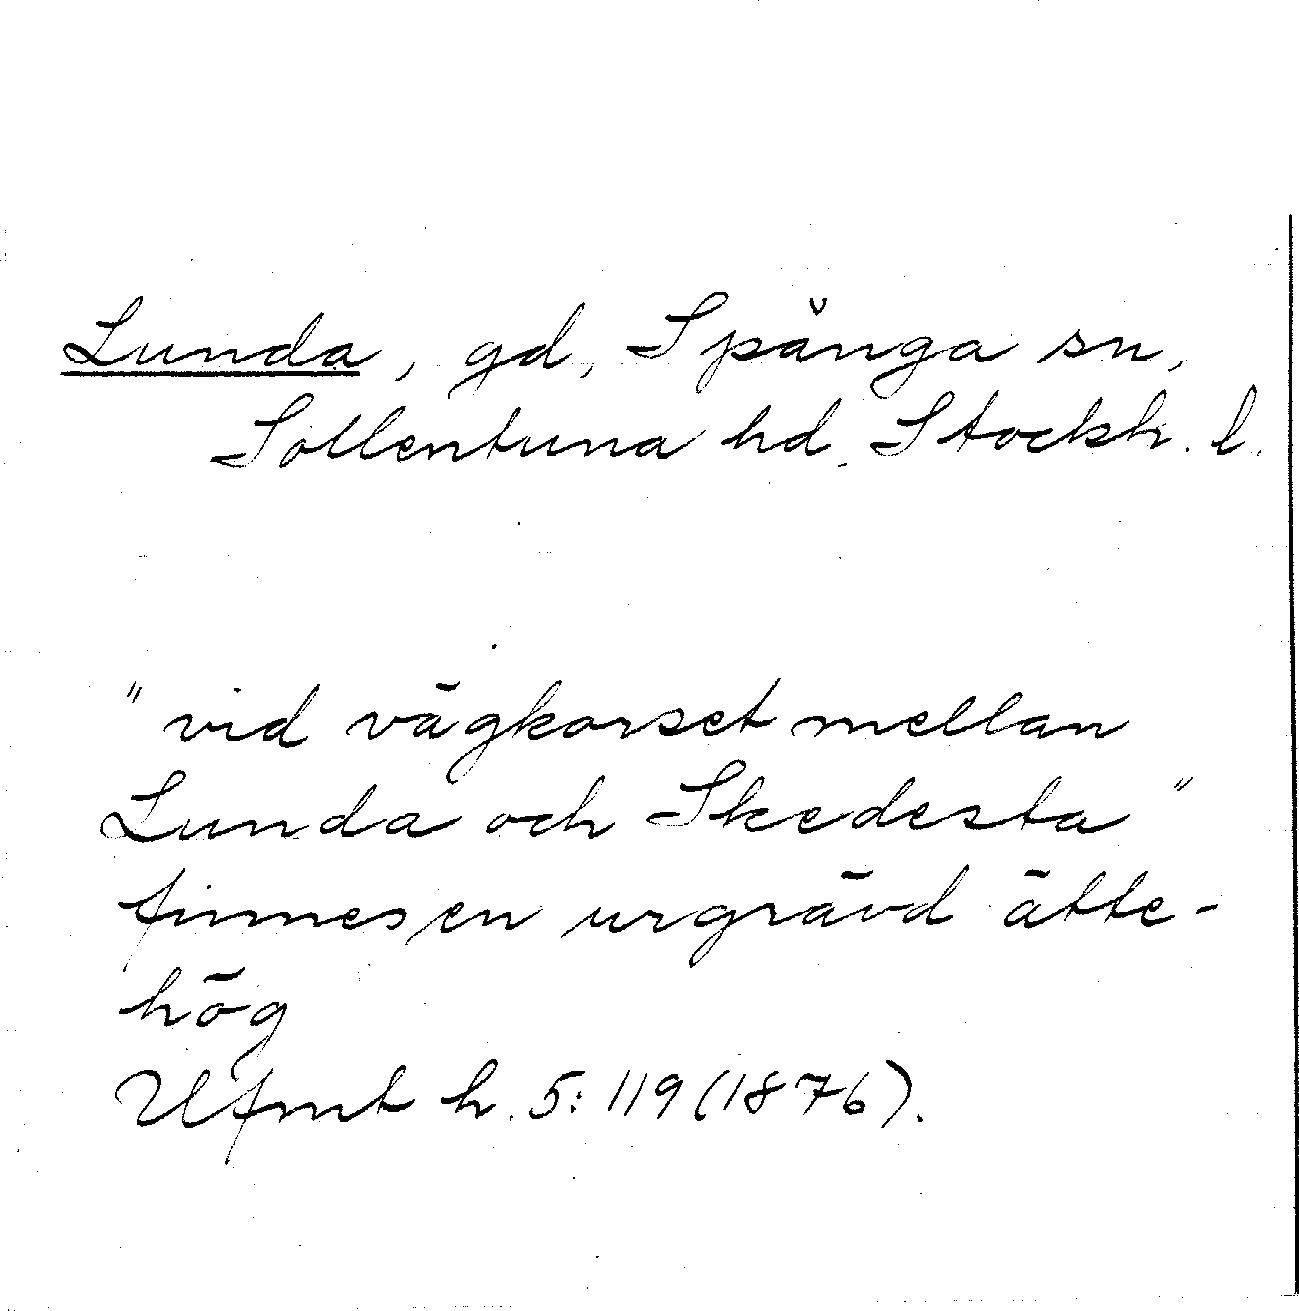 Lunda, gd, Spånga sn,
Sollentuna hd. Stockh. l.
"vid vägkorset mellan
Lunda och Skedesta"
finnes en urgrävd ätte-
hög
Ufmt h. 5:119 (1876).